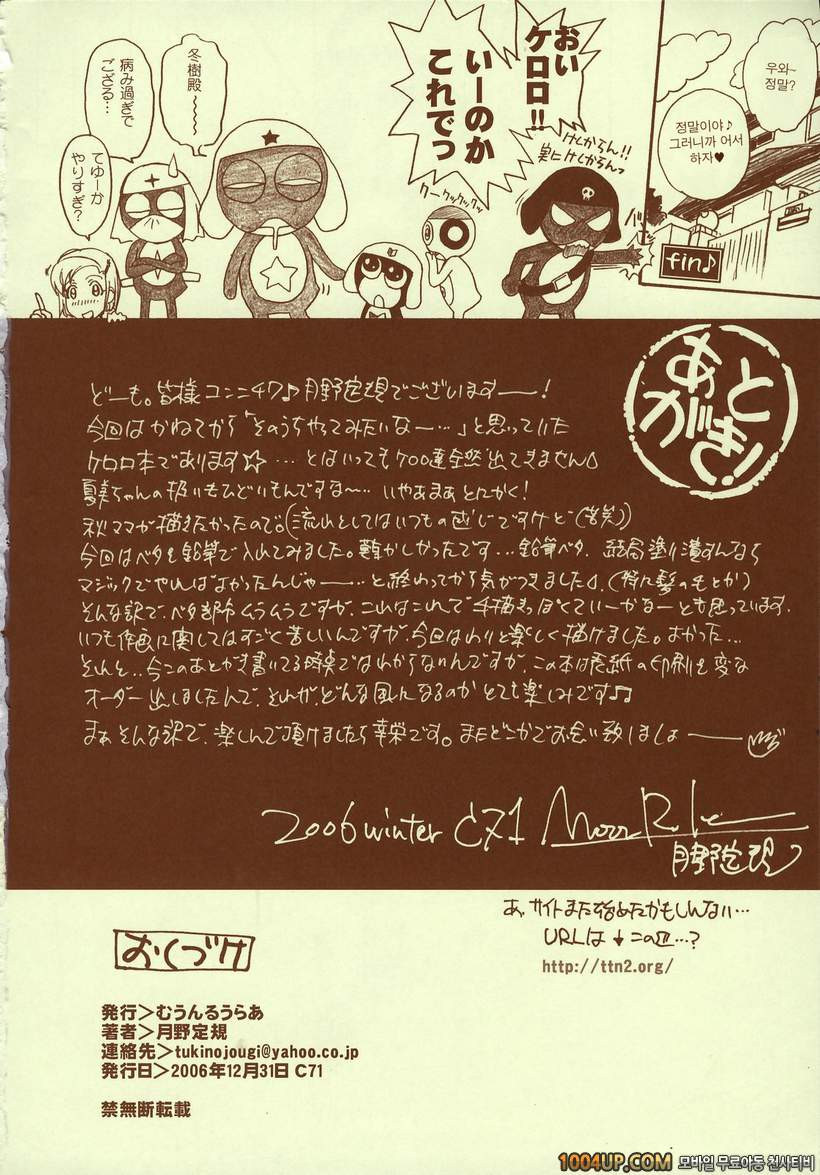 우와~
정말?
정말이야♪
그러니까 어서
하자♥
fin♪
おい
ケロロ!!
いーのか
これでっ
けしからん!!
実にけしからんっ
クークックックッ
冬樹殿
〜〜〜
病み過ぎで
ござる…
てゆーか
やりすぎ?
あとがき!
どーも。皆様コンニチワ♪月野定規でございますーー!
今回はかねてから「そのうちやってみたいなー…」と思っていた
ケロロ本であります☆…とはいってもケロロ達全然出てきません
夏美ちゃんの扱いもひどいもんですな〜…いやあまぁとにかく!
秋ママが描きたかったので。(流れとしてはいつもの感じですけど(苦笑))
今回はベタを鉛筆で入れてみました。難かしかったです…鉛筆ベタ。結局塗り潰すんなら
マジックでやればよかったんじゃー…と終わってから気がつきました。(特に髪の毛とか)
そんな訳で、ベタ部分ムラムラですが、これはこれで手描きっぽくていーかなーとも思っています。
いつも作画に関してはすごく苦しいんですが、今回はわりと楽しく描けました。よかった…
それと…今このあとがき書いてる時点ではわからないんですが、この本は表紙の印刷を変な
オーダー出しましたんで、それが、どんな風になるのかとても楽しみです♫
まぁそんな訳で、楽しんで頂けましたら幸栄です。またどこかでお会い致しましょーー
2006 winter C71
月野定規
あ、サイトまた始めたかもしんない…
URLは↓この辺…?
http://ttn2.org/
おくづけ
発行>むうんるうらあ
著者>月野定規
連絡先>tukinojougi@yahoo.co.jp
発行日>2006年12月31日 C71
禁無断転載
1004UP.COM 모바일 무료야동 천사티비